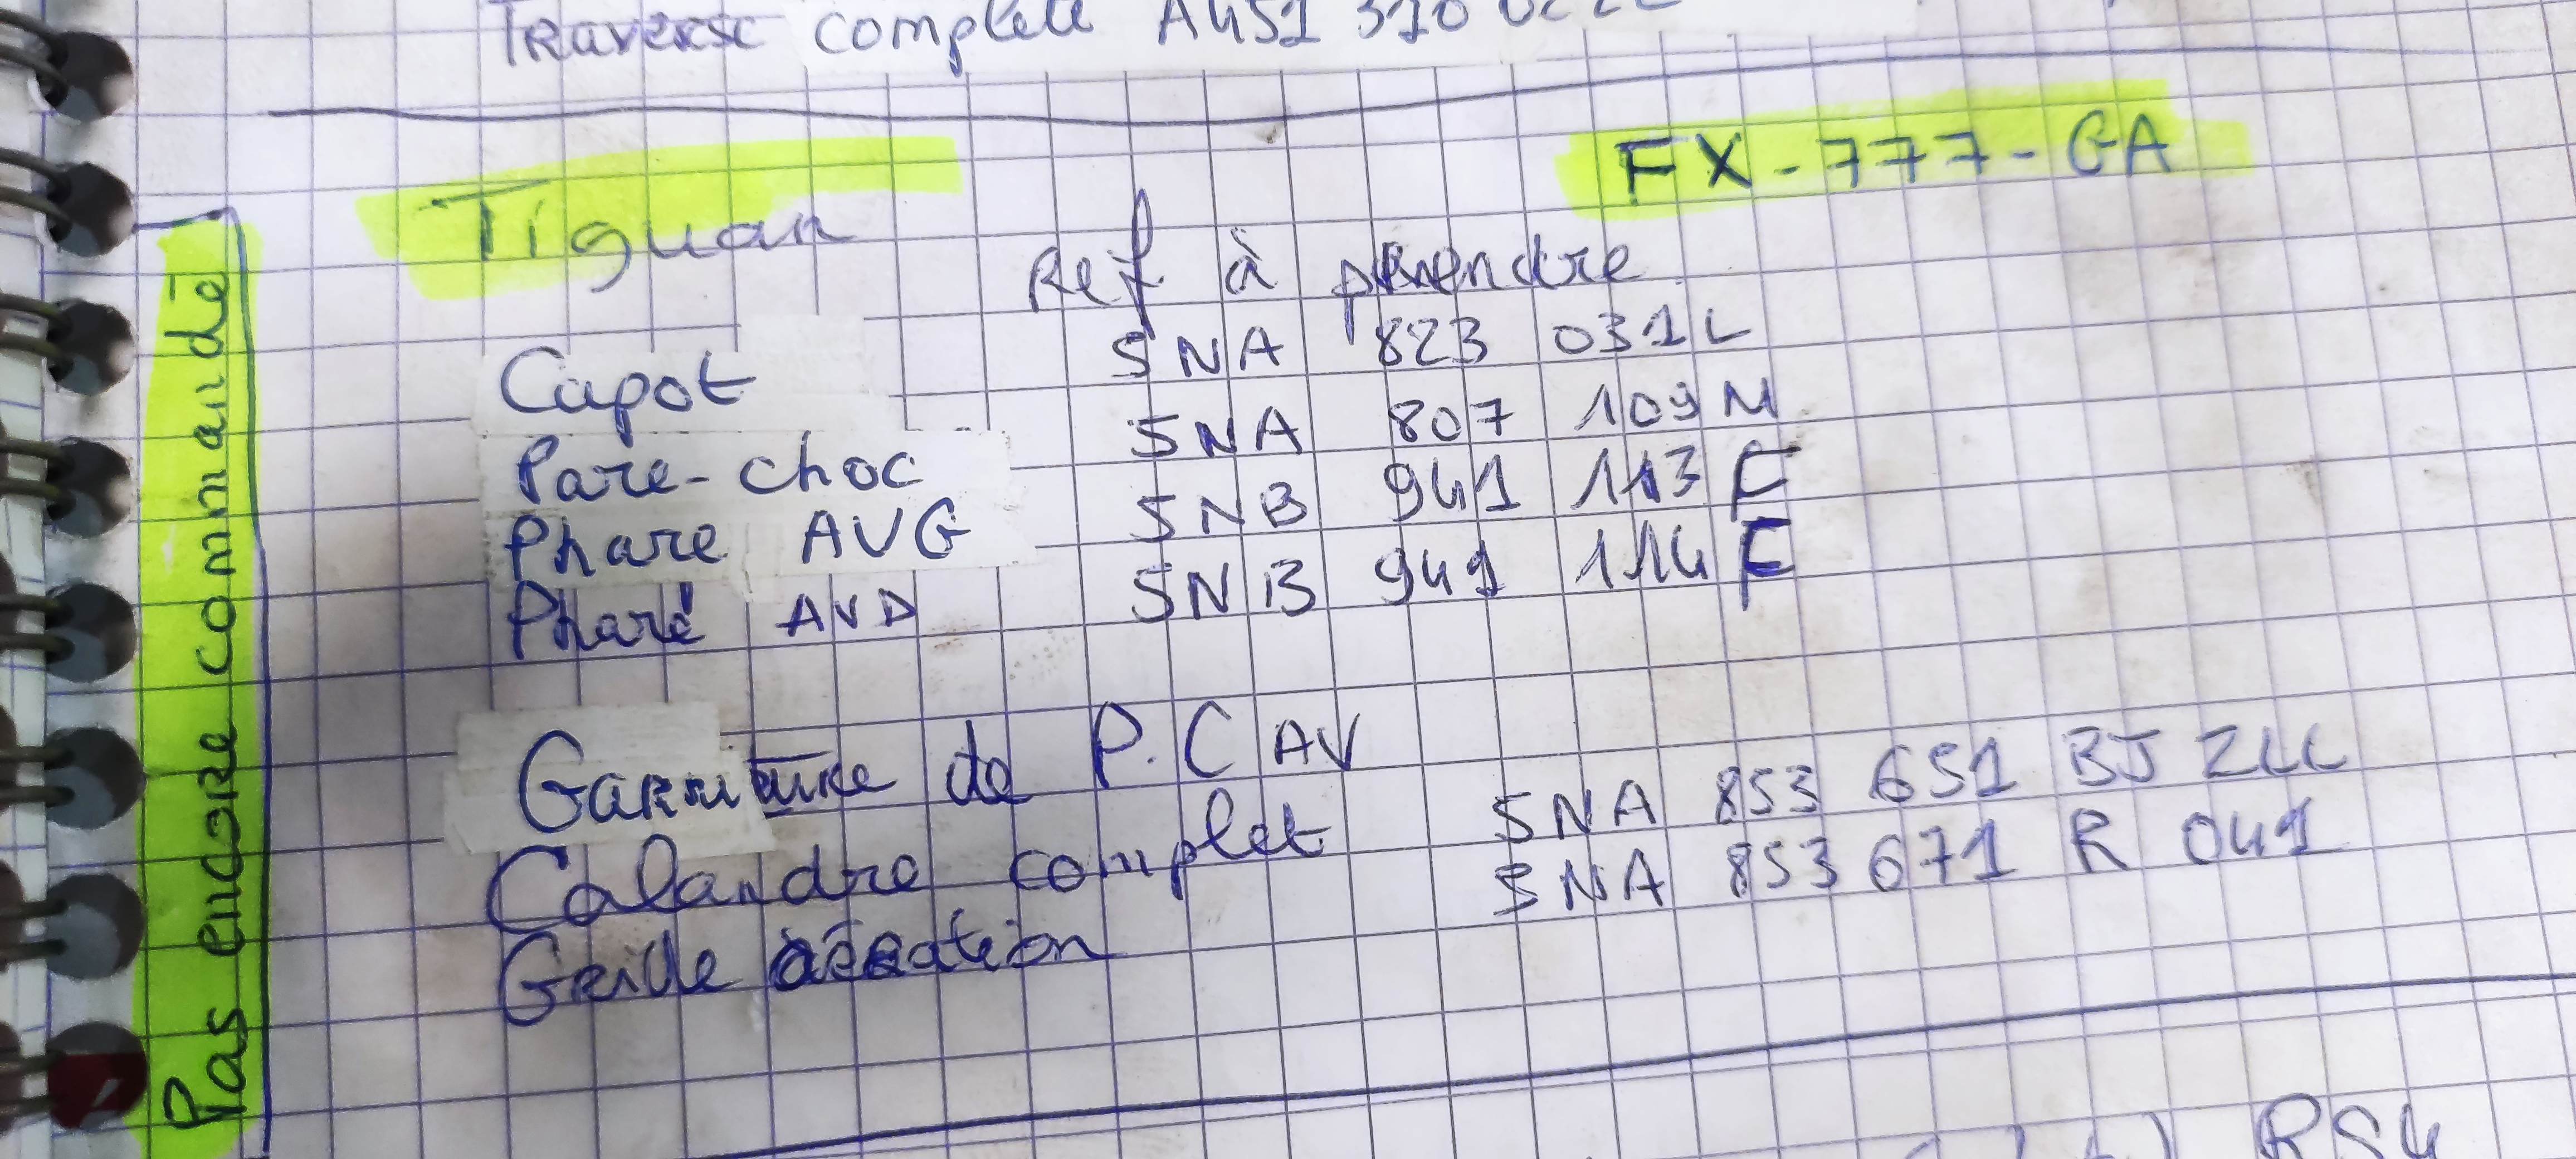 Traverse complete A451 310
Tiguan FX-777-GA
Ref à prendre
Capot 5NA 823 031L
Pare-choc 5NA 807 109M
Phare AVG 5NB 941 113 F
Phare AVD 5NB 941 114 F
Garniture de P.C AV
Calandre complet 5NA 853 651 BJ ZLL
Grille aération 5NA 853 671 R 041
Pas encore commandé
RS4